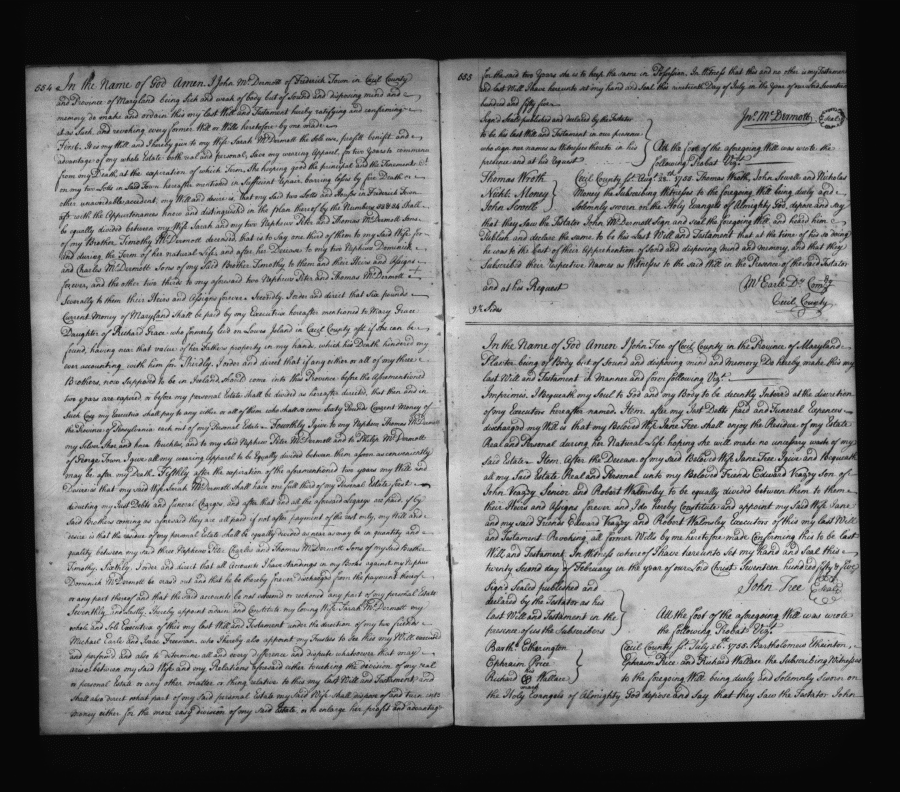 554
In the Name of God Amen I John McDermott of Frederick Town in Cecil County
and Province of Maryland being Sick and weak of body but of Sound and disposing mind and
memory do make and ordain this my Last Will and Testament hereby ratifying and confirming
it as Such, and revoking every former Will or Wills heretofore by me made
First. It is my Will and I hereby give to my Wife Sarah McDermott the Sole use, profit benefit and
advantage of my whole Estate both real and personal, Save my wearing Apparel, for two Years to commence
from my Death at the expiration of which Term, She keeping good the principal and the Tenements &c
on my two Lotts in Said Town hereafter mentioned in Sufficient Repair, barring losses by fire Death or
other unavoidable accident, my Will and desire is, that my Said two Lotts and Houses in Frederick Town
with the Appurtenances know and distinguished in the Plan thereof by the Numbers Shall
be equally divided between my Wife Sarah and my two Nephews Peter and Thomas McDermott Sons
of my Brother Timothy McDermott deceased, that is to Say one third of them to my Said Wife for
and during the Term of her natural Life, and after her Decease to my two Nephews Dominick
and Charles McDermott Sons of my Said Brother Timothy to them and their Heirs and Assigns
forever, and the other two thirds to my aforesaid two Nephews Peter and Thomas McDermott
Severally to them their Heirs and Assigns forever Secondly, I order and direct that Six pounds
Current Money of Maryland Shall be paid by my Executrix hereafter mentioned to Mary Grace
Daughter of Richard Grace who formerly lived on Lowes Island in Cecil County aforesd if she can be
found, having near that value of her Fathers property in my hands, which his Death hindered my
ever accounting with him for. Thirdly, I order and direct that if any either or all of my three
Brothers, now Supposed to be in Ireland, should come into this Province before the aforementioned
two years are expired, or before my personal Estate shall be divided as hereafter directed, that then and in
Such Case my Executrix shall pay to any either or all of them who shall so come Sixty Pounds Current Money of
the Province of Pensylvania each out of my Personal Estate. Fourthly I give to my Nephew Thomas McDermott
my Silver Shoe and Knee Buckles, and to my said Nephew Peter McDermott and to Philip McDermott
of George Town I give all my wearing Apparel to be Equally divided between them as soon as conveniently
may be after my Death. Fifthly after the expiration of the aforementioned two years my Will and
Desire is that my Said Wife Sarah McDermott shall have one full third of my Personal Estate, first
deducting my Just Debts and funeral Charges, and after that and all the aforesaid Legacys are paid, if my
Said Brothers coming as aforesaid they are all paid if not after payment of the rest only, my Will and
desire is that the residue of my personal Estate shall be equally divided as near as may be in quantity and
quality between my said three Nephews Peter Charles and Thomas McDermott Sons of my Said Brother
Timothy. Sixthly, I order and direct that all Accounts I have standing in my Books against my Nephew
Dominick McDermott be crossed out and that he be thereby forever discharged from the payment thereof
or any part thereof and that the said accounts be not esteemed or reckoned any part of my personal Estate
Seventhly, and Lastly, I hereby appoint, ordain, and Constitute my loving Wife Sarah McDermott my
whole and Sole Executrix of this my last Will and Testament under the direction of my two friends
Michael Earle and Isaac Freeman, who I hereby also appoint my Trustees to See this my Will executed
and performed and also to determine all and every difference and dispute whatsoever that may
arise between my Said Wife and my Relations aforesaid either touching the division of my real
or personal Estate or any other matter or thing relative to this my last Will and Testament, and
shall also direct what part of my Said personal Estate my Said Wife shall dispose of and turn into
money either for the more easy division of my Said Estate, or to enlarge her profit and advantage
555
for the said two Years she is to keep the same in Possession. In Witness that this and no other is my Testament
and last Will I have hereunto set my hand and Seal this nineteenth Day of July in the Year of our Lord Seventeen
hundred and fifty five
Jno. McDermott Seal
Sign'd Seal'd published and declared by the Testator
to be his last Will and Testament in our presence
who sign our names as Witnesses thereto in his
presence and at his Request
Thomas Wroth
Nichls. Money
John Scovell
At the foot of the aforegoing Will was wrote the
following Probat Vizt.
Cecil County ss. Augt. 22d. 1755. Thomas Wroth, John Scovell and Nicholas
Money the Subscribing Witnesses to the foregoing Will being duly and
Solemnly sworn on the Holy Evangels of Almighty God, depose and Say
that they Saw the Testator John McDermott Sign and Seal the foregoing Will, and heard him
Publish and declare the same to be his last Will and Testament that at the time of his so doing
he was to the best of their Apprehension of Sound and disposing mind and memory, and that they
Subscribed their respective Names as Witnesses to the said Will in the Presence of the Said Testator
and at his Request
Ml. Earle Dy. Comry.
Cecil County
In the Name of God Amen I John Free of Cecil County in the Province of Maryland
Planter being of Body but of Sound and disposing mind and Memory Do hereby make this my
last Will and Testament in Manner and form following Vizt.
Imprimis. I Bequeath my Soul to God and my Body to be decently Interrd at the discretion
of my Executors hereafter named. Item. after my Just Debts paid and Funeral Expences
discharged my Will is that my Beloved Wife Jane Free shall enjoy the Residue of my Estate
Real and Personal during her Natural Life hoping she will make no uncessary waste of my
Said Estate. Item. After the Decease of my said Beloved Wife Jane Free I give and Bequeath
all my Said Estate Real and Personal unto my Beloved Friend Edward Veazy Son of
John Veazy Senior and Robert Walmsley to be equally divided between them to them
their Heirs and Assigns forever and I do hereby Constitute and appoint my Said Wife Jane
and my said Friends Edward Veazy and Robert Walmsley Executors of this my last Will
and Testament Revoking all former Wills by me heretofore made Confirming this to be Last
Will and Testament. In Witness whereof I have hereunto Set my Hand and Seal this
twenty Second day of February in the year of our Lord Christ Seventeen hundred fifty & five
John Free Seal
Sign'd Sealed published and
declared by the Testator as his
last Will and Testament in the
presence of us the Subscribers
Barthw. Etherington
Ephraim Price
Richard Wallace
mark
At the foot of the aforegoing Will was wrote
the following Probat Vizt.
Cecil County ss. July 26th. 1755. Bartholomew Etherinton,
Ephraim Price and Richard Wallace the Subscribing Witnesses
to the foregoing Will being duly and Solemnly Sworn on
the Holy Evangels of Almighty God depose and Say that they Saw the Testator John